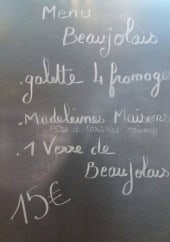 Menu
Beaujolais
.galette 4 fromage
.Madeleines Maisons
.1 Verre de
Beaujolais
15€